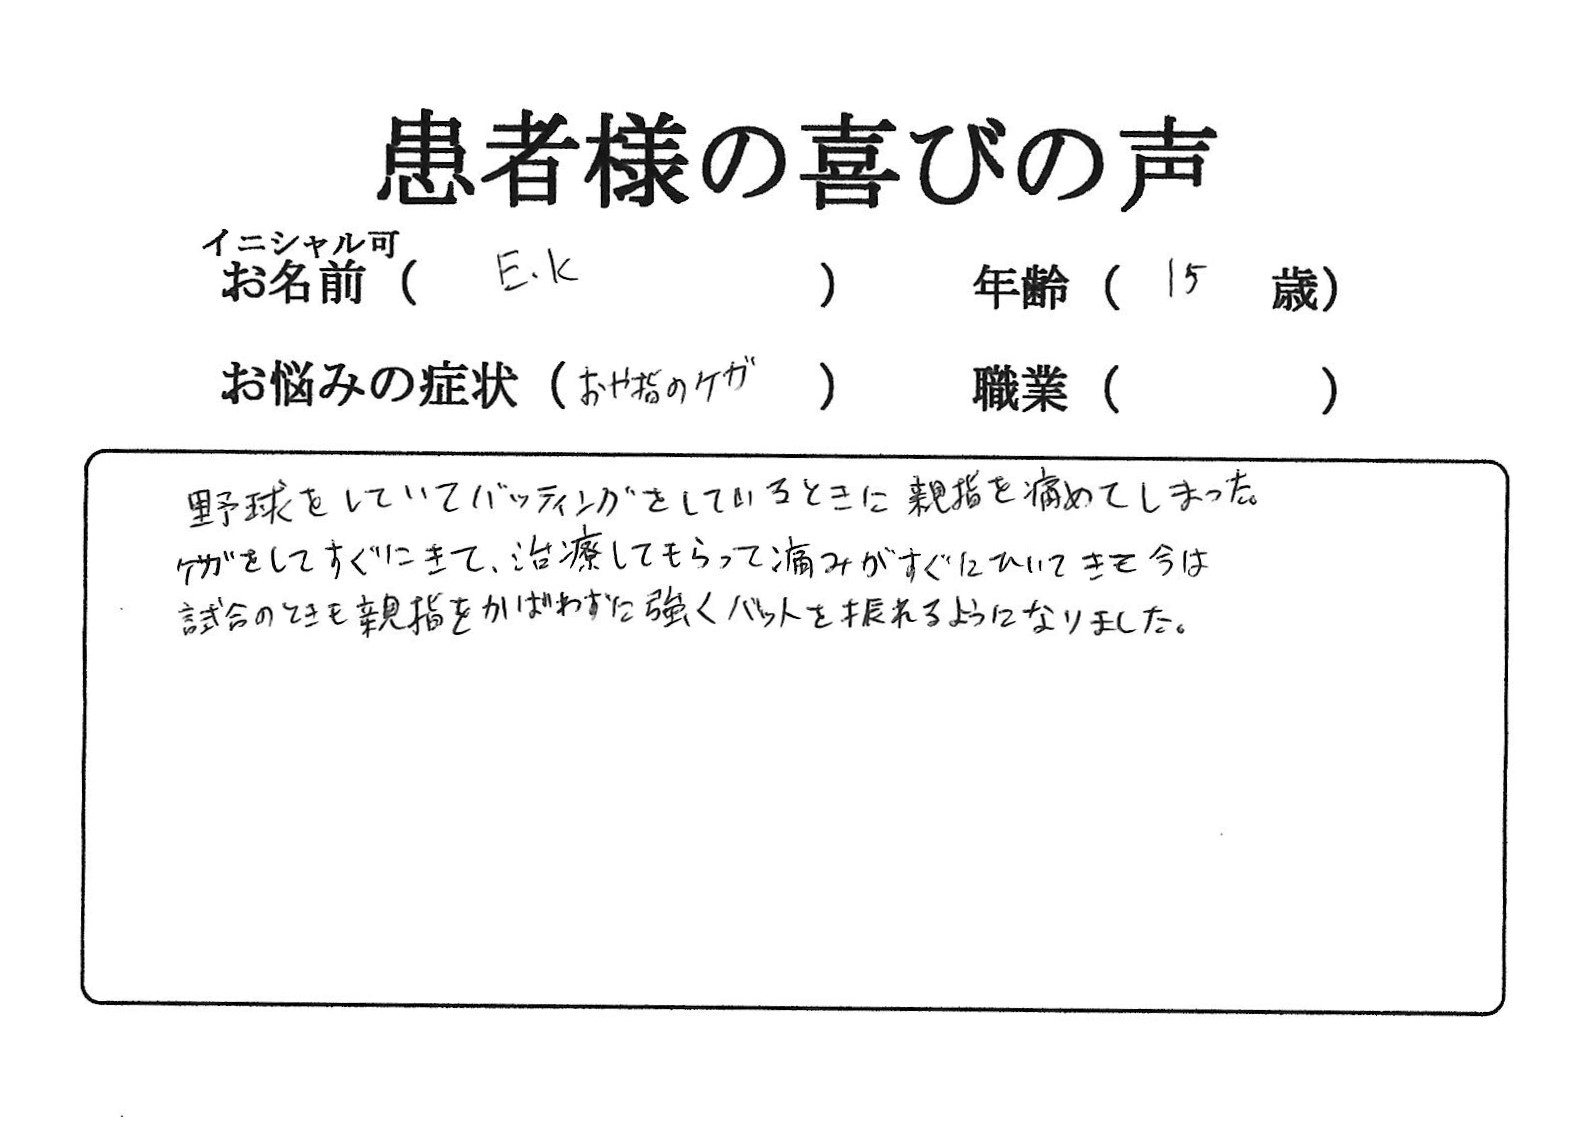 患者様の喜びの声
イニシャル可
お名前 ( E.K ) 年齢 ( 15 歳)
お悩みの症状 (おや指のケガ ) 職業 ( )
野球をしていてバッティングをしているときに親指を痛めてしまった。
ケガをしてすぐにきて、治療してもらって痛みがすぐにひいてきて今は
試合のときも親指をかばわずに強くバットを振れるようになりました。